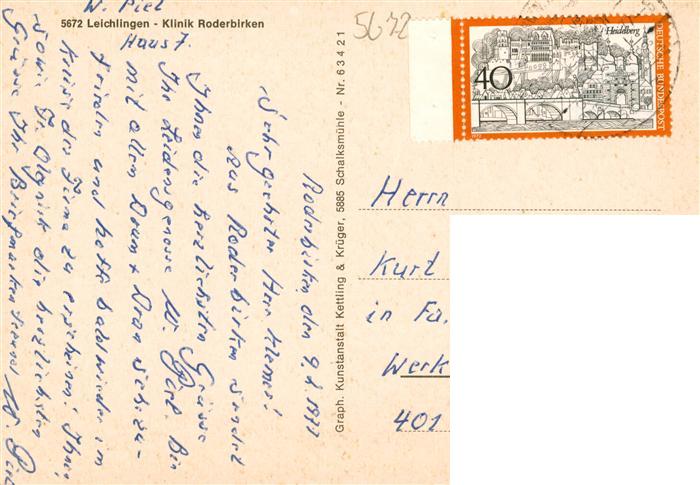 W. Piel
5672 Leichlingen - Klinik Roderbirken
Haus 7.
5672
Heidelberg
DEUTSCHE BUNDESPOST
40
Graph. Kunstanstalt Kettling & Krüger, 5885 Schalksmühle - Nr. 63421
Roderbirken den 9. 1977
Sehr geehrter Herr
Aus Roderbirken sendet
Ihnen die herzlichsten Grüsse
Ihr Leidensgenosse W. Piel. Bin
mit allem Drum + Dran sehr zu-
frieden und hoffe bald wieder im
Kreise der Firma zu erscheinen. Ihnen
sowie F. die herzlichsten
Grüsse Ihr Briefmarkenfreund W. Piel
Herrn
Kurt
in Fa.
Werk
401